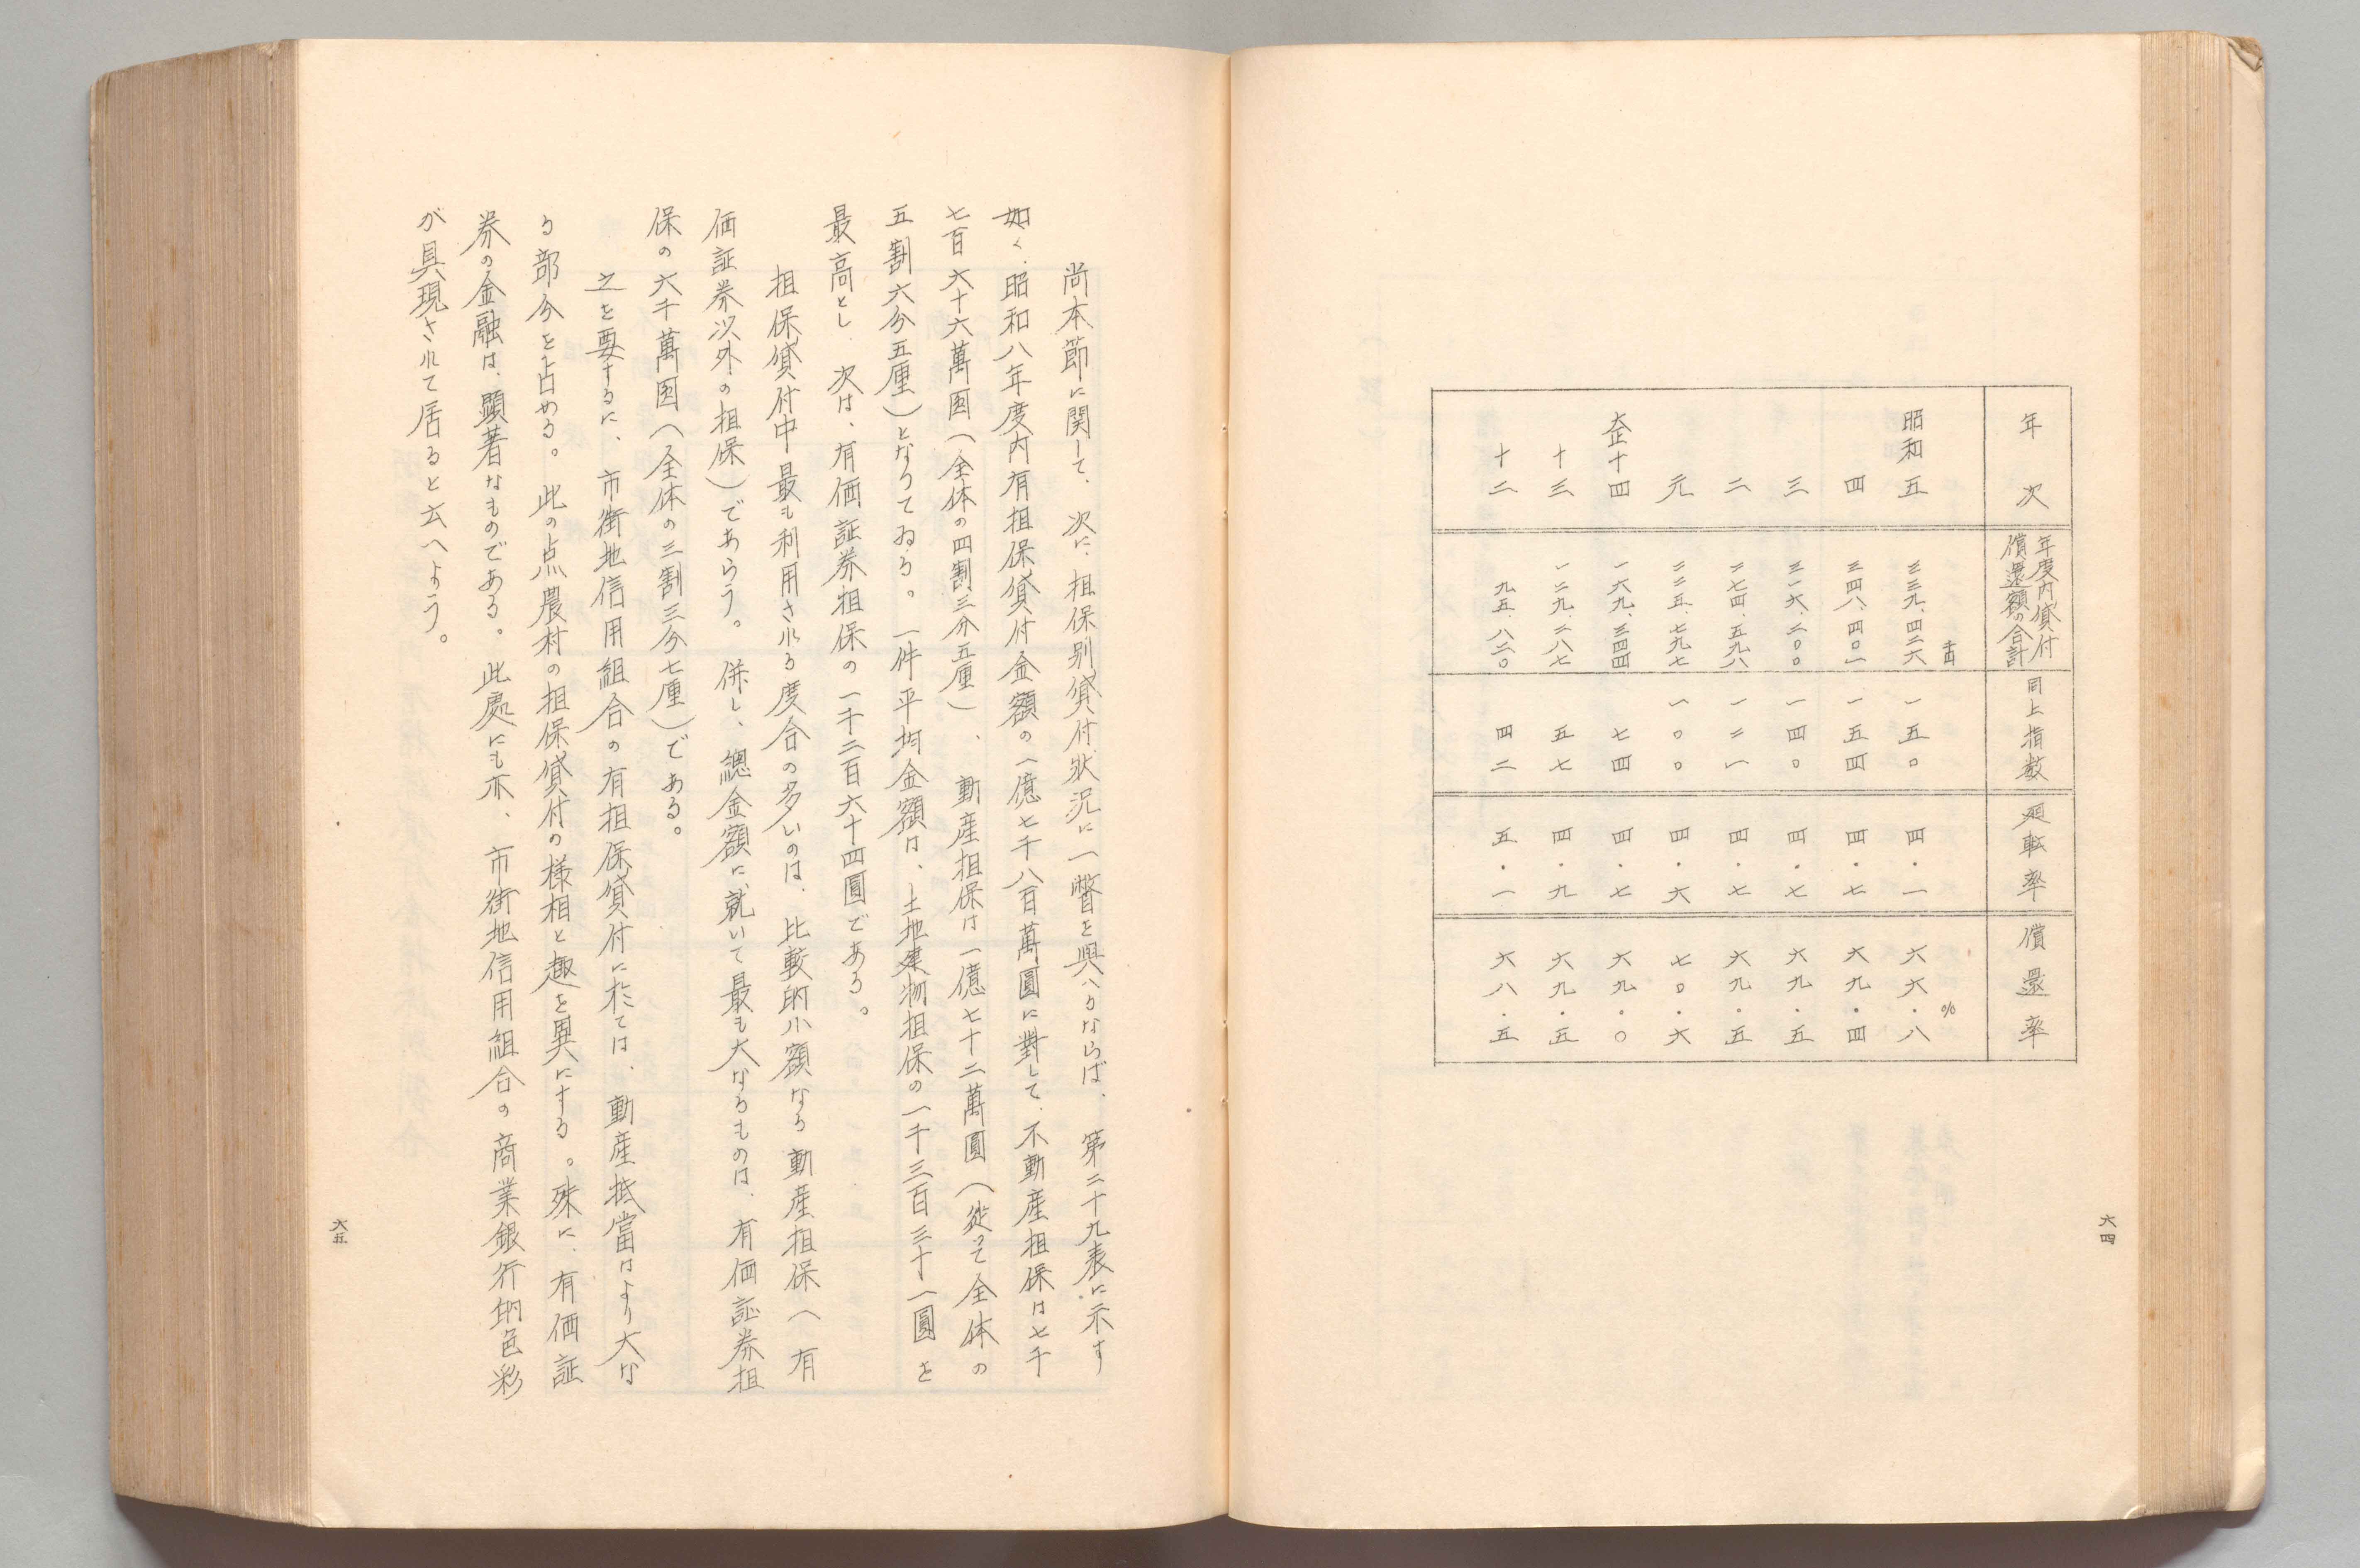 年次 年度内貸付償還額の合計 同上指数 廻転率 償還率
千円 %
昭和五 三三九、四二六 一五〇 四・一 六六・八
四 三四八、四〇一 一五四 四・七 六九・四
三 三一六、二〇〇 一四〇 四・七 六九・五
二 二七四、五九八 一二一 四・七 六九・五
元 二二五、七九七 一〇〇 四・六 七〇・六
大正十四 一六九、三四四 七四 四・七 六九・〇
十三 一二九、二八七 五七 四・九 六九・五
十二 九五、八二〇 四二 五・一 六八・五
六四
尚本節に関して、次に、担保別貸付状況に一瞥を與へるならば、第二十九表に示す
如く、昭和八年度内有担保貸付金額の一億七千八百萬圓に對して、不動産担保は七千
七百六十六萬圓（全体の四割三分五厘）、動産担保は一億七十二萬圓（従って全体の
五割六分五厘）となりてゐる。一件平均金額は、土地建物担保の一千三百三十一圓を
最高とし、次は、有価証券担保の一千二百六十四圓である。
担保貸付中最も利用される度合の多いのは、比較的小額なる動産担保（有
価証券以外の担保）であらう。併し、總金額に就いて最も大なるものは、有価証券担
保の六千萬圓（全体の三割三分七厘）である。
之を要するに、市街地信用組合の有担保貸付に於ては、動産抵當はより大な
る部分を占める。此の点農村の担保貸付の様相と趣を異にする。殊に、有価証
券の金融は、顕著なものである。此處にも亦、市街地信用組合の商業銀行的色彩
が具現されて居ると云へよう。
六五